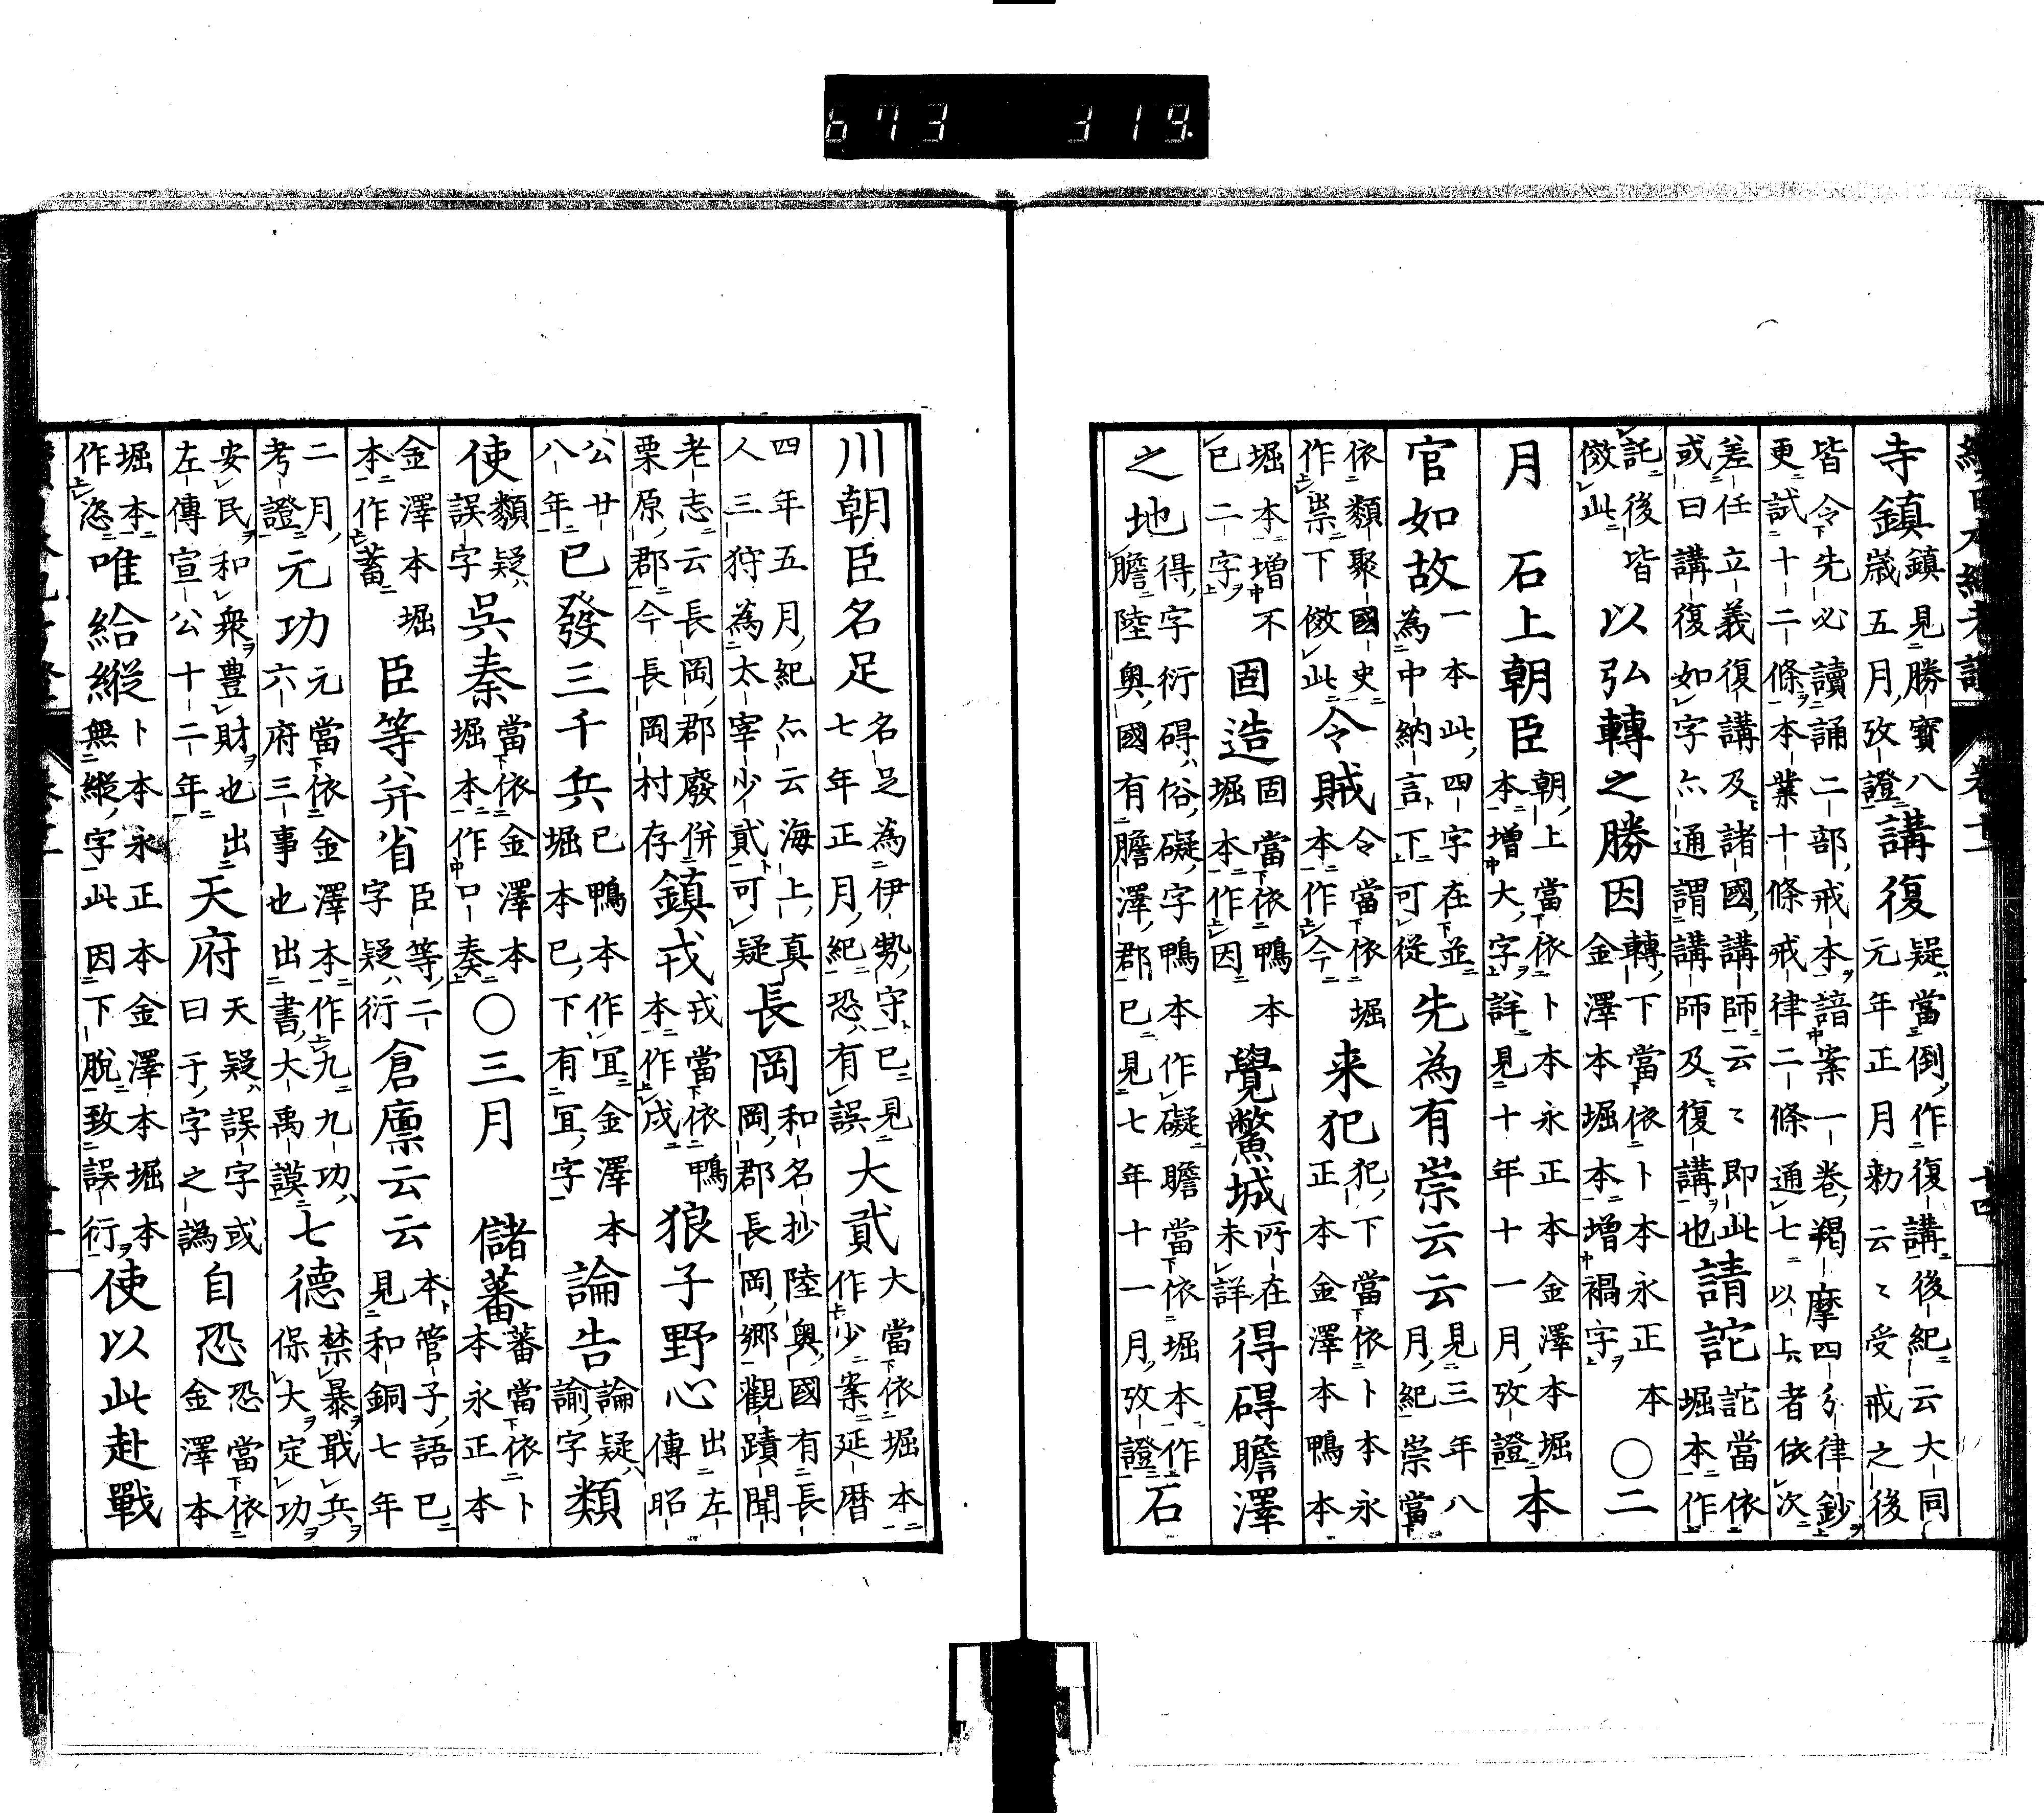 673 319.
寺鎮鎮見勝寶八歳五月攷證講復疑當倒作復講後紀云大同元年正月勅云〻受戒之後
皆令先必讀誦二部戒本諳案一卷羯摩四分律鈔更試十二條本業十條戒律二條通七以上者依次
差任立義復講及諸國講師云〻即此或曰講復如字亦通謂講師及復講也請詑詑當依堀本作
託後傚此皆以弘轉之勝因轉下當依卜本永正本金澤本堀本増禍字〇二
月 石上朝臣朝上當依卜本永正本金澤本堀本増大字詳見十年十一月攷證本
官如故一本此四字在並為中納言下可從先為有崇云云見三年八月紀崇當
依類聚國史作祟下傚此令賊令當依堀本作今来犯犯下當依卜本永正本金澤本鴨本
堀本増不已二字固造固當依鴨本堀本作因覺鱉城所在未詳得碍贍澤
之地得字衍碍俗礙字鴨本作礙贍當依堀本作膽陸奥國有膽澤郡已見七年十一月攷證石
川朝臣名足名足為伊勢守已見七年正月紀恐有誤大貳大當依堀本作少案延暦
四年五月紀亦云海上真人三狩為太宰少貳可疑長岡和名抄陸奥國有長岡郡長岡郷觀蹟聞
老志云長岡郡廢併栗原郡今長岡村存鎮戎戎當依鴨本作戍狼子野心出左傳昭
公廿八年已發三千兵已鴨本作宜金澤本堀本已下有宜字論告論疑諭字類
使類疑誤字呉秦當依金澤本堀本作口奏〇三月 儲蕃蕃當依卜本永正本
金澤本堀本作蓄臣等并省臣等二字疑衍倉廩云云本管子語已見和銅七年
二月考證元功元當依金澤本作九九功六府三事也出書大禹謨七德禁暴戢兵保大定功
安民和衆豊財也出左傳宣公十二年天府天疑誤字或曰于字之譌自恐恐當依金澤本
堀本作恣唯給縱卜本永正本金澤本堀本無縱字此因下脱致誤衍使以此赴戰